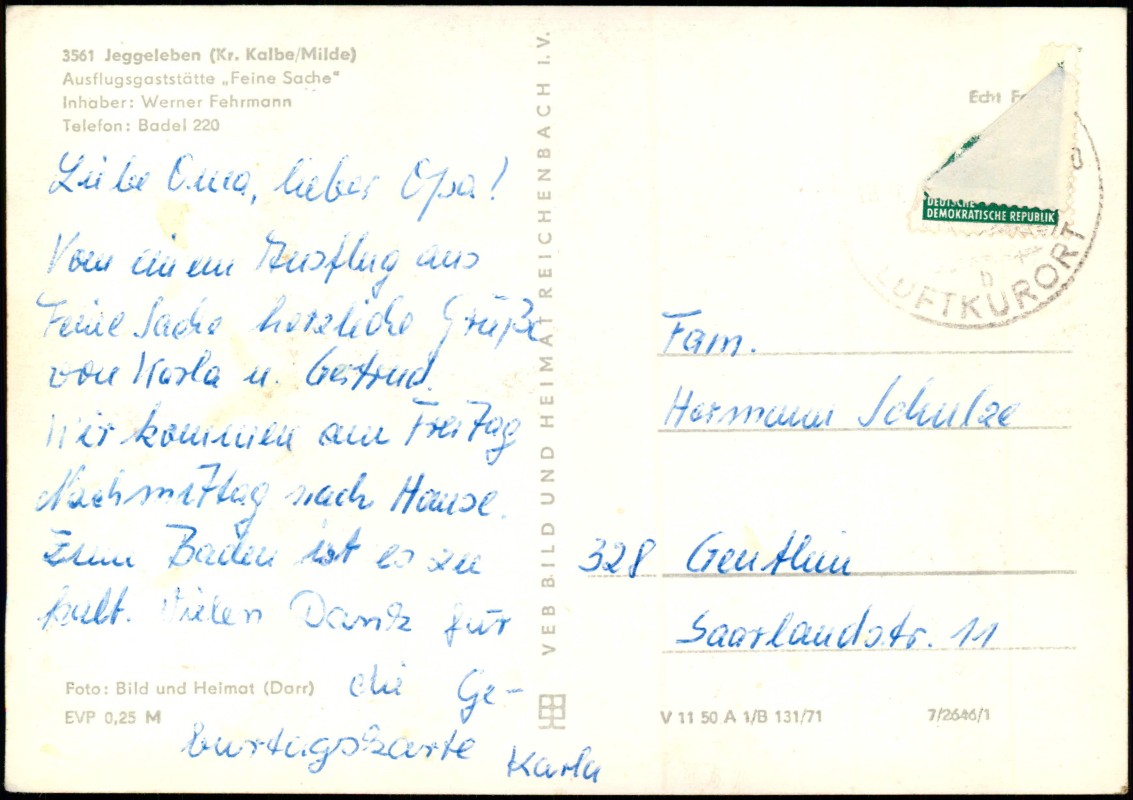 3561 Jeggeleben (Kr. Kalbe/Milde)
Ausflugsgaststätte „Feine Sache“
Inhaber: Werner Fehrmann
Telefon: Badel 220
Liebe Oma, lieber Opa!
Vom einem Ausflug aus
Feine Sache herzliche Grüße
von Karla u. Gertrud.
Wir kommen am Freitag
Nachmittag nach Hause.
Zum Baden ist es zu
kalt. Vielen Dank für
die Ge-
burtagskarte
Karla
Foto: Bild und Heimat (Darr)
EVP 0,25 M
VEB BILD UND HEIMAT REICHENBACH I. V.
Echt
DEUTSCHE
DEMOKRATISCHE REPUBLIK
b
LUFTKURORT
Fam.
Hermann Schulze
328 Genthin
Saarlandstr. 11
V 11 50 A 1/B 131/71
7/2646/1